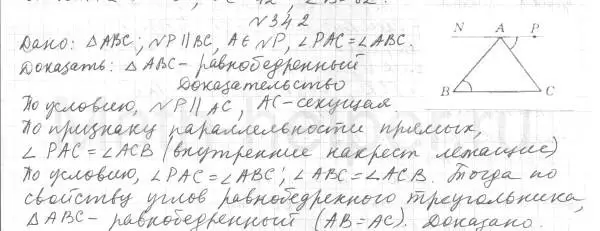 N342
Дано: △ABC; NP∥BC, A∈NP, ∠PAC=∠ABC.
Доказать: △ABC - равнобедренный
Доказательство
По условию, NP∥AC, AC-секущая.
По признаку параллельности прямых,
∠PAC=∠ACB (внутренние накрест лежащие)
По условию, ∠PAC=∠ABC; ∠ABC=∠ACB. Тогда по
свойству углов равнобедренного треугольника,
△ABC - равнобедренный (AB=AC). Доказано.
N A P
B C